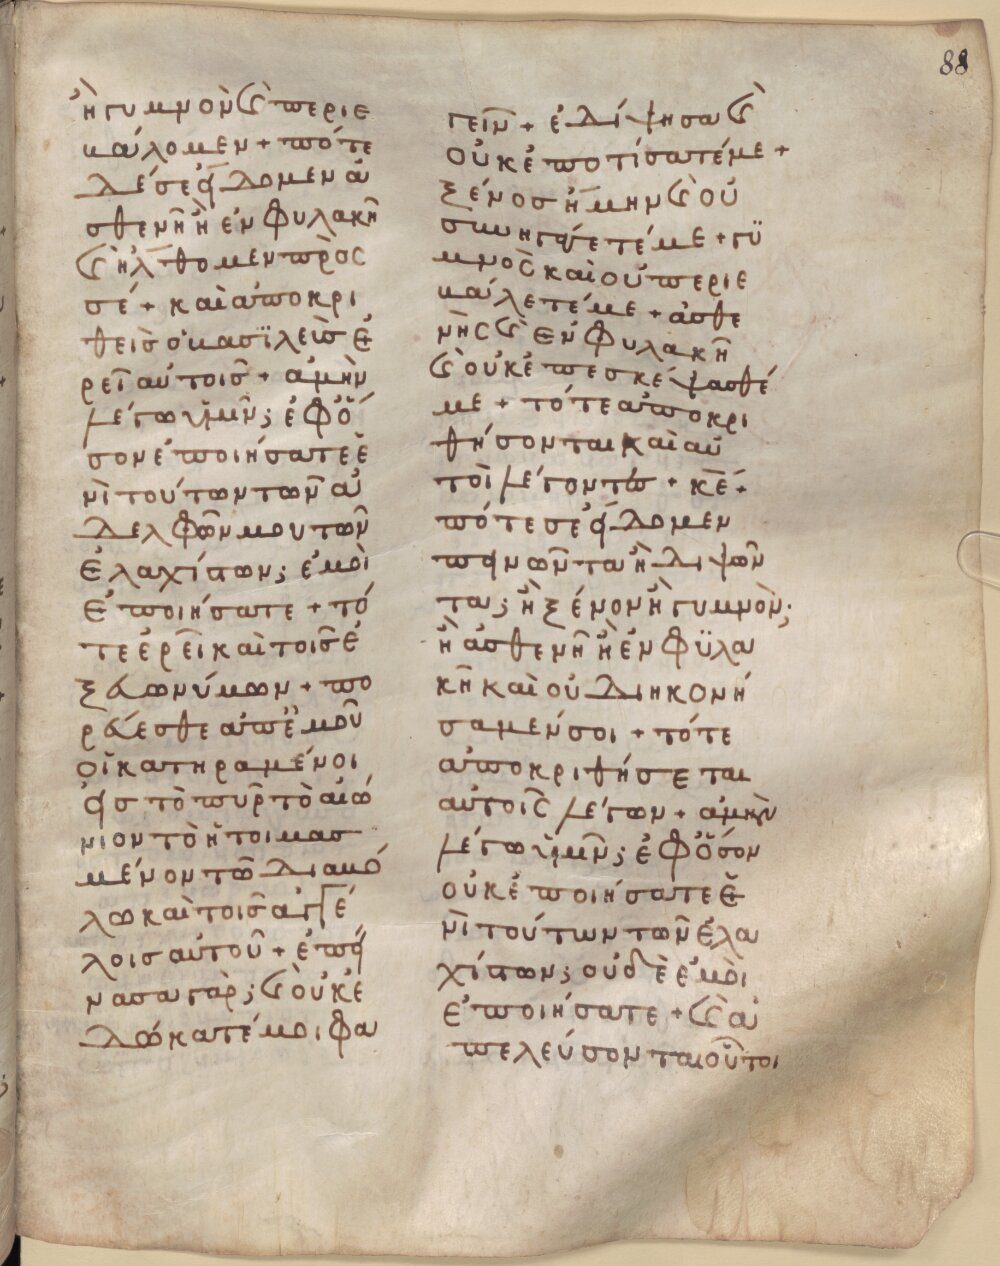 88
ἢ γυμνὸν ϗ περιε
βάλομεν + πότε
δέ σε εἴδομεν ἀ
σθενῆ ἢ ἐν φυλακῆ
ϗ ἤλθομεν πρὸς
σέ + καὶ ἀποκρι
θεὶς ὁ βασϊλεὺς ἐ
ρεῖ αὐτοῖς + ἀμὴν
λέγω ὑμῖν; ἐφ ὅ
σον ἐποιήσατε ἑ
νὶ τούτων τῶν ἀ
δελφῶν μου τῶν
ἐλαχίστων; ἐμοὶ
ἐποιήσατε + τό
τε ἐρεῖ καὶ τοῖς ἐ
ξ εὐωνύμων + πο
ρεύεσθε ἀπ ἐμοῦ
οἱ κατηραμένοι
εἰς τὸ πῦρ τὸ αἰώ
νιον τὸ ἡτοιμασ
μένον τῶ διαβό
λω καὶ τοῖς ἀγγέ
λοις αὐτοῦ + ἐπεί
νασα γὰρ; ϗ οὐκ ἐ
δώκατέ μοι φα
γεῖν + ἐδίψησα ϗ
οὐκ ἐποτίσατέ με +
ξένος ἤμην ϗ οὐ
συνηγάγετέ με + γϋ
μνὸς καὶ οὐ περιε
βάλετέ με + ἀσθε
νὴς ϗ ἐν φυλακῆ
ϗ οὐκ ἐπεσκέψασθέ
με + τότε ἀποκρι
θήσονται καὶ αὐ
τοὶ λέγοντες + κε +
πότε σε εἴδομεν
πεινῶντα ἢ διψῶν
τα; ἢ ξένον ἢ γυμνὸν;
ἢ ἀσθενῆ ἢ ἐν φϋλα
κῆ καὶ οὐ διηκονή
σαμέν σοι + τότε
ἀποκριθήσεται
αὐτοῖς λέγων + ἀμὴν
λέγω ὑμῖν; ἐφ ὅσον
οὐκ ἐποιήσατε ἑ
νὶ τούτων τῶν ἐλα
χίστων; οὐδὲ ἐμοὶ
ἐποιήσατε + ϗ ἀ
πελεύσονται οὗτοι